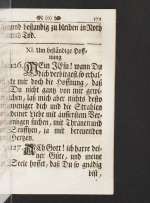 beständig zu bleiben in Noth
und Tod.
XI. Um beständige Hoff-
nung
126. Mein JEsu! wann Du
Dich verbirgest, so erhal-
te mir doch die Hoffnung, daß
Du nicht gantz von mir gewi-
chen, laß mich aber nichts desto
weniger dich und die Strahlen
deiner Liebe mit äusserstem Ver-
mögen suchen, mit Thränen und
Seuffzen, ja mit bereuenden
Hertzen.
127. Ach Gott! ich harre dei-
ner Güte, und meine
Seele hoffet, daß Du so gnädig
bist,